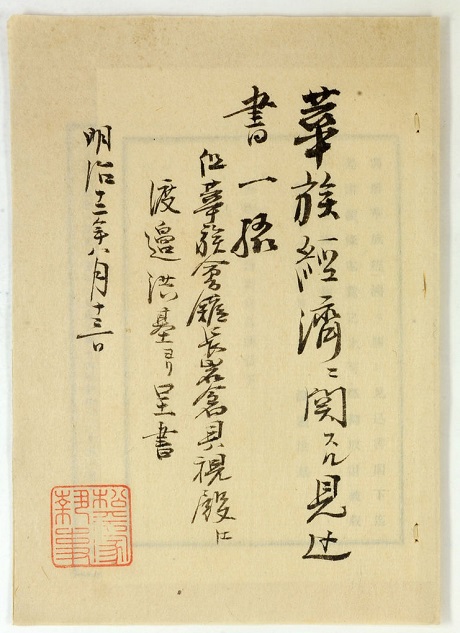 華族經濟ニ関スル見込
書一
但華族會館長岩倉具視殿江
渡邉洪基ヨリ呈書
明治十二年八月十三日